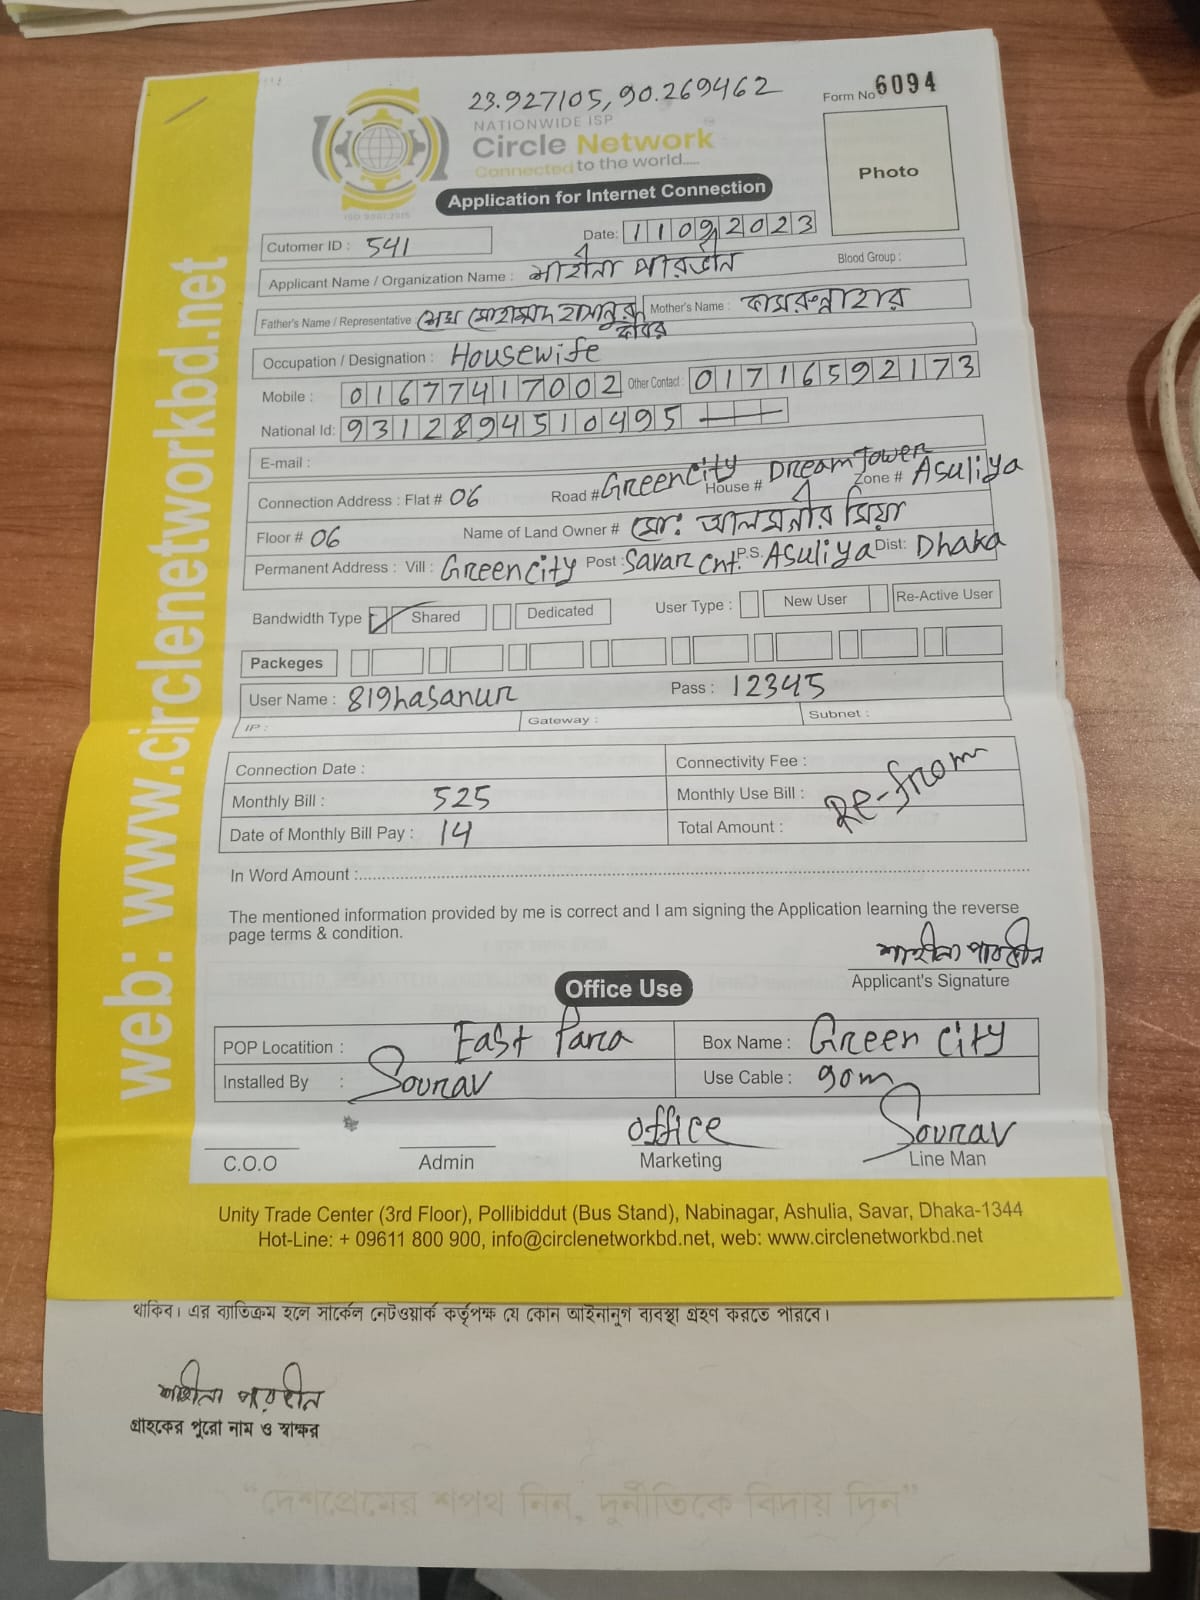 23.927105, 90.269462
Form No 6094
NATIONWIDE ISP
Circle Network
Connected to the world.....
ISO 9001:2015
Photo
Application for Internet Connection
Date: 11092023
Cutomer ID : 541
Applicant Name / Organization Name : শাহীনা পারভীন Blood Group :
Father's Name / Representative শেখ মোহাম্মদ হাসানুর কবির Mother's Name : কামরুন্নাহার
Occupation / Designation : Housewife
Mobile : 01677417002 Other Contact : 01716592173
National Id: 9312894510495
E-mail :
Connection Address : Flat # 06 Road # Greencity House # Dream Tower Zone # Asuliya
Floor # 06 Name of Land Owner # মো: আলমগীর মিয়া
Permanent Address : Vill : Greencity Post : Savar Cnt. P.S. Asuliya Dist: Dhaka
Bandwidth Type Shared Dedicated User Type : New User Re-Active User
Packeges
User Name : 819hasanur Pass : 12345
IP : Gateway : Subnet :
Connection Date : Connectivity Fee :
Monthly Bill : 525 Monthly Use Bill : Re-from
Date of Monthly Bill Pay : 14 Total Amount :
In Word Amount :
The mentioned information provided by me is correct and I am signing the Application learning the reverse
page terms & condition.
শাহীনা পারভীন
Applicant's Signature
Office Use
POP Locatition : East Para Box Name : Green city
Installed By : Sourav Use Cable : 90m
office Sourav
C.O.O Admin Marketing Line Man
Unity Trade Center (3rd Floor), Pollibiddut (Bus Stand), Nabinagar, Ashulia, Savar, Dhaka-1344
Hot-Line: + 09611 800 900, info@circlenetworkbd.net, web: www.circlenetworkbd.net
web: www.circlenetworkbd.net
থাকিব। এর ব্যতিক্রম হলে সার্কেল নেটওয়ার্ক কর্তৃপক্ষ যে কোন আইনানুগ ব্যবস্থা গ্রহণ করতে পারবে।
শাহীনা পারভীন
গ্রাহকের পুরো নাম ও স্বাক্ষর
“দেশপ্রেমের শপথ নিন, দুর্নীতিকে বিদায় দিন”